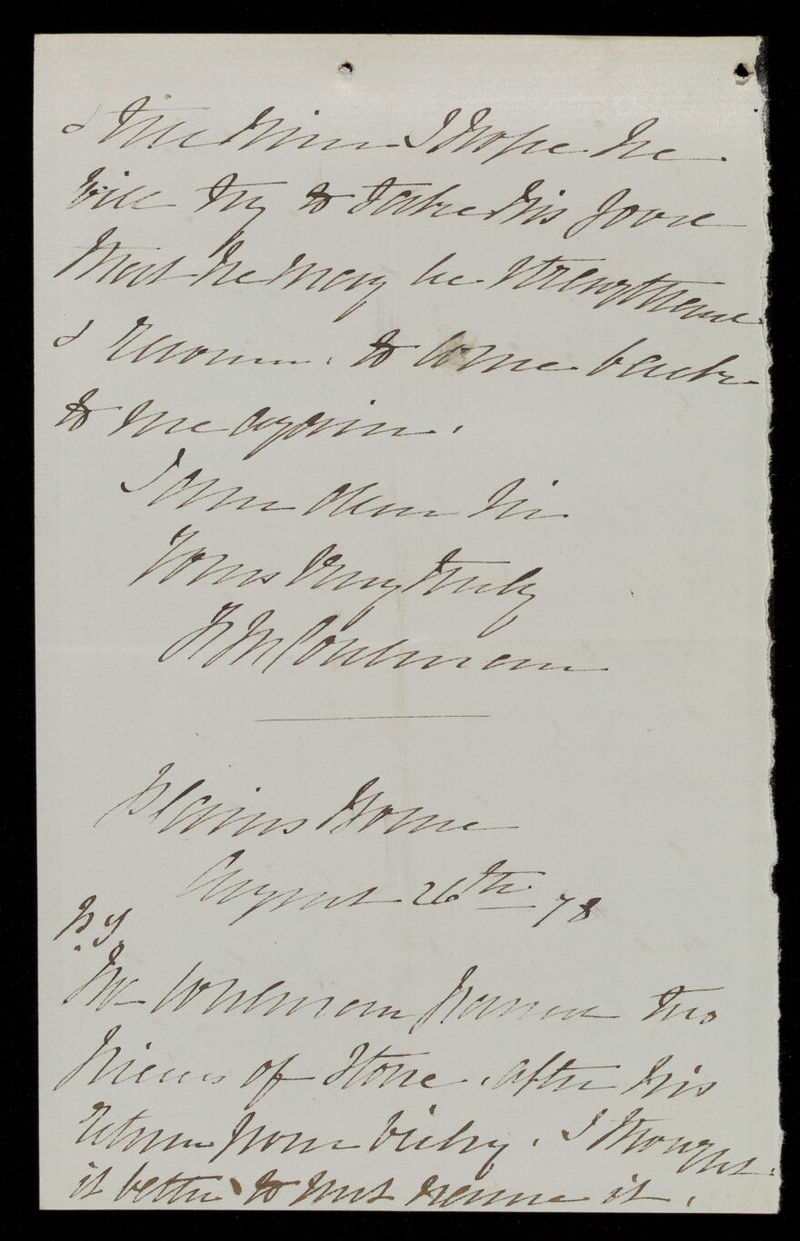 & true him I hope he
will try to take his food
that he may be strengthened
& recover. to come back
to me again.
I am dear Sir
Yours Very truly
Coulman
Plains House
August 26th 78
P.S.
Mr Coulman passed two
Pieces of Stone. after his
return from Vichy. I thought
it better to not name it.